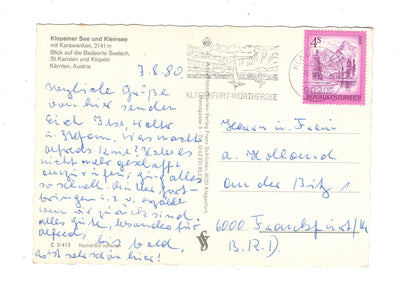 Klopeiner See und Kleinsee
mit Karawanken, 2141 m
Blick auf die Badeorte Seelach,
St Kanzian und Klopein
Kärnten, Austria
7.8.80
Herzliche Grüße
von hier senden
Euch Ilse, Walter
u. Stefan. Was macht
Alfreds Knie? Habe es
nicht mehr geschafft
anzurufen; ging alles
so schnell. Bin der fort-
bringen u.s.w. erzählt
wenn wir zurück sind
alles Gute, besonders für
Alfred, bis bald.
ist sehr schön hier!
C 2/413 Nachdruck verboten
KLAGENFURT-WÖRTHERSEE
9020
4 S
REPUBLIK ÖSTERREICH
Herrn u. Frau
A. Holland
am der Bitz 1
6000 Frankfurt/M
B.R.D.